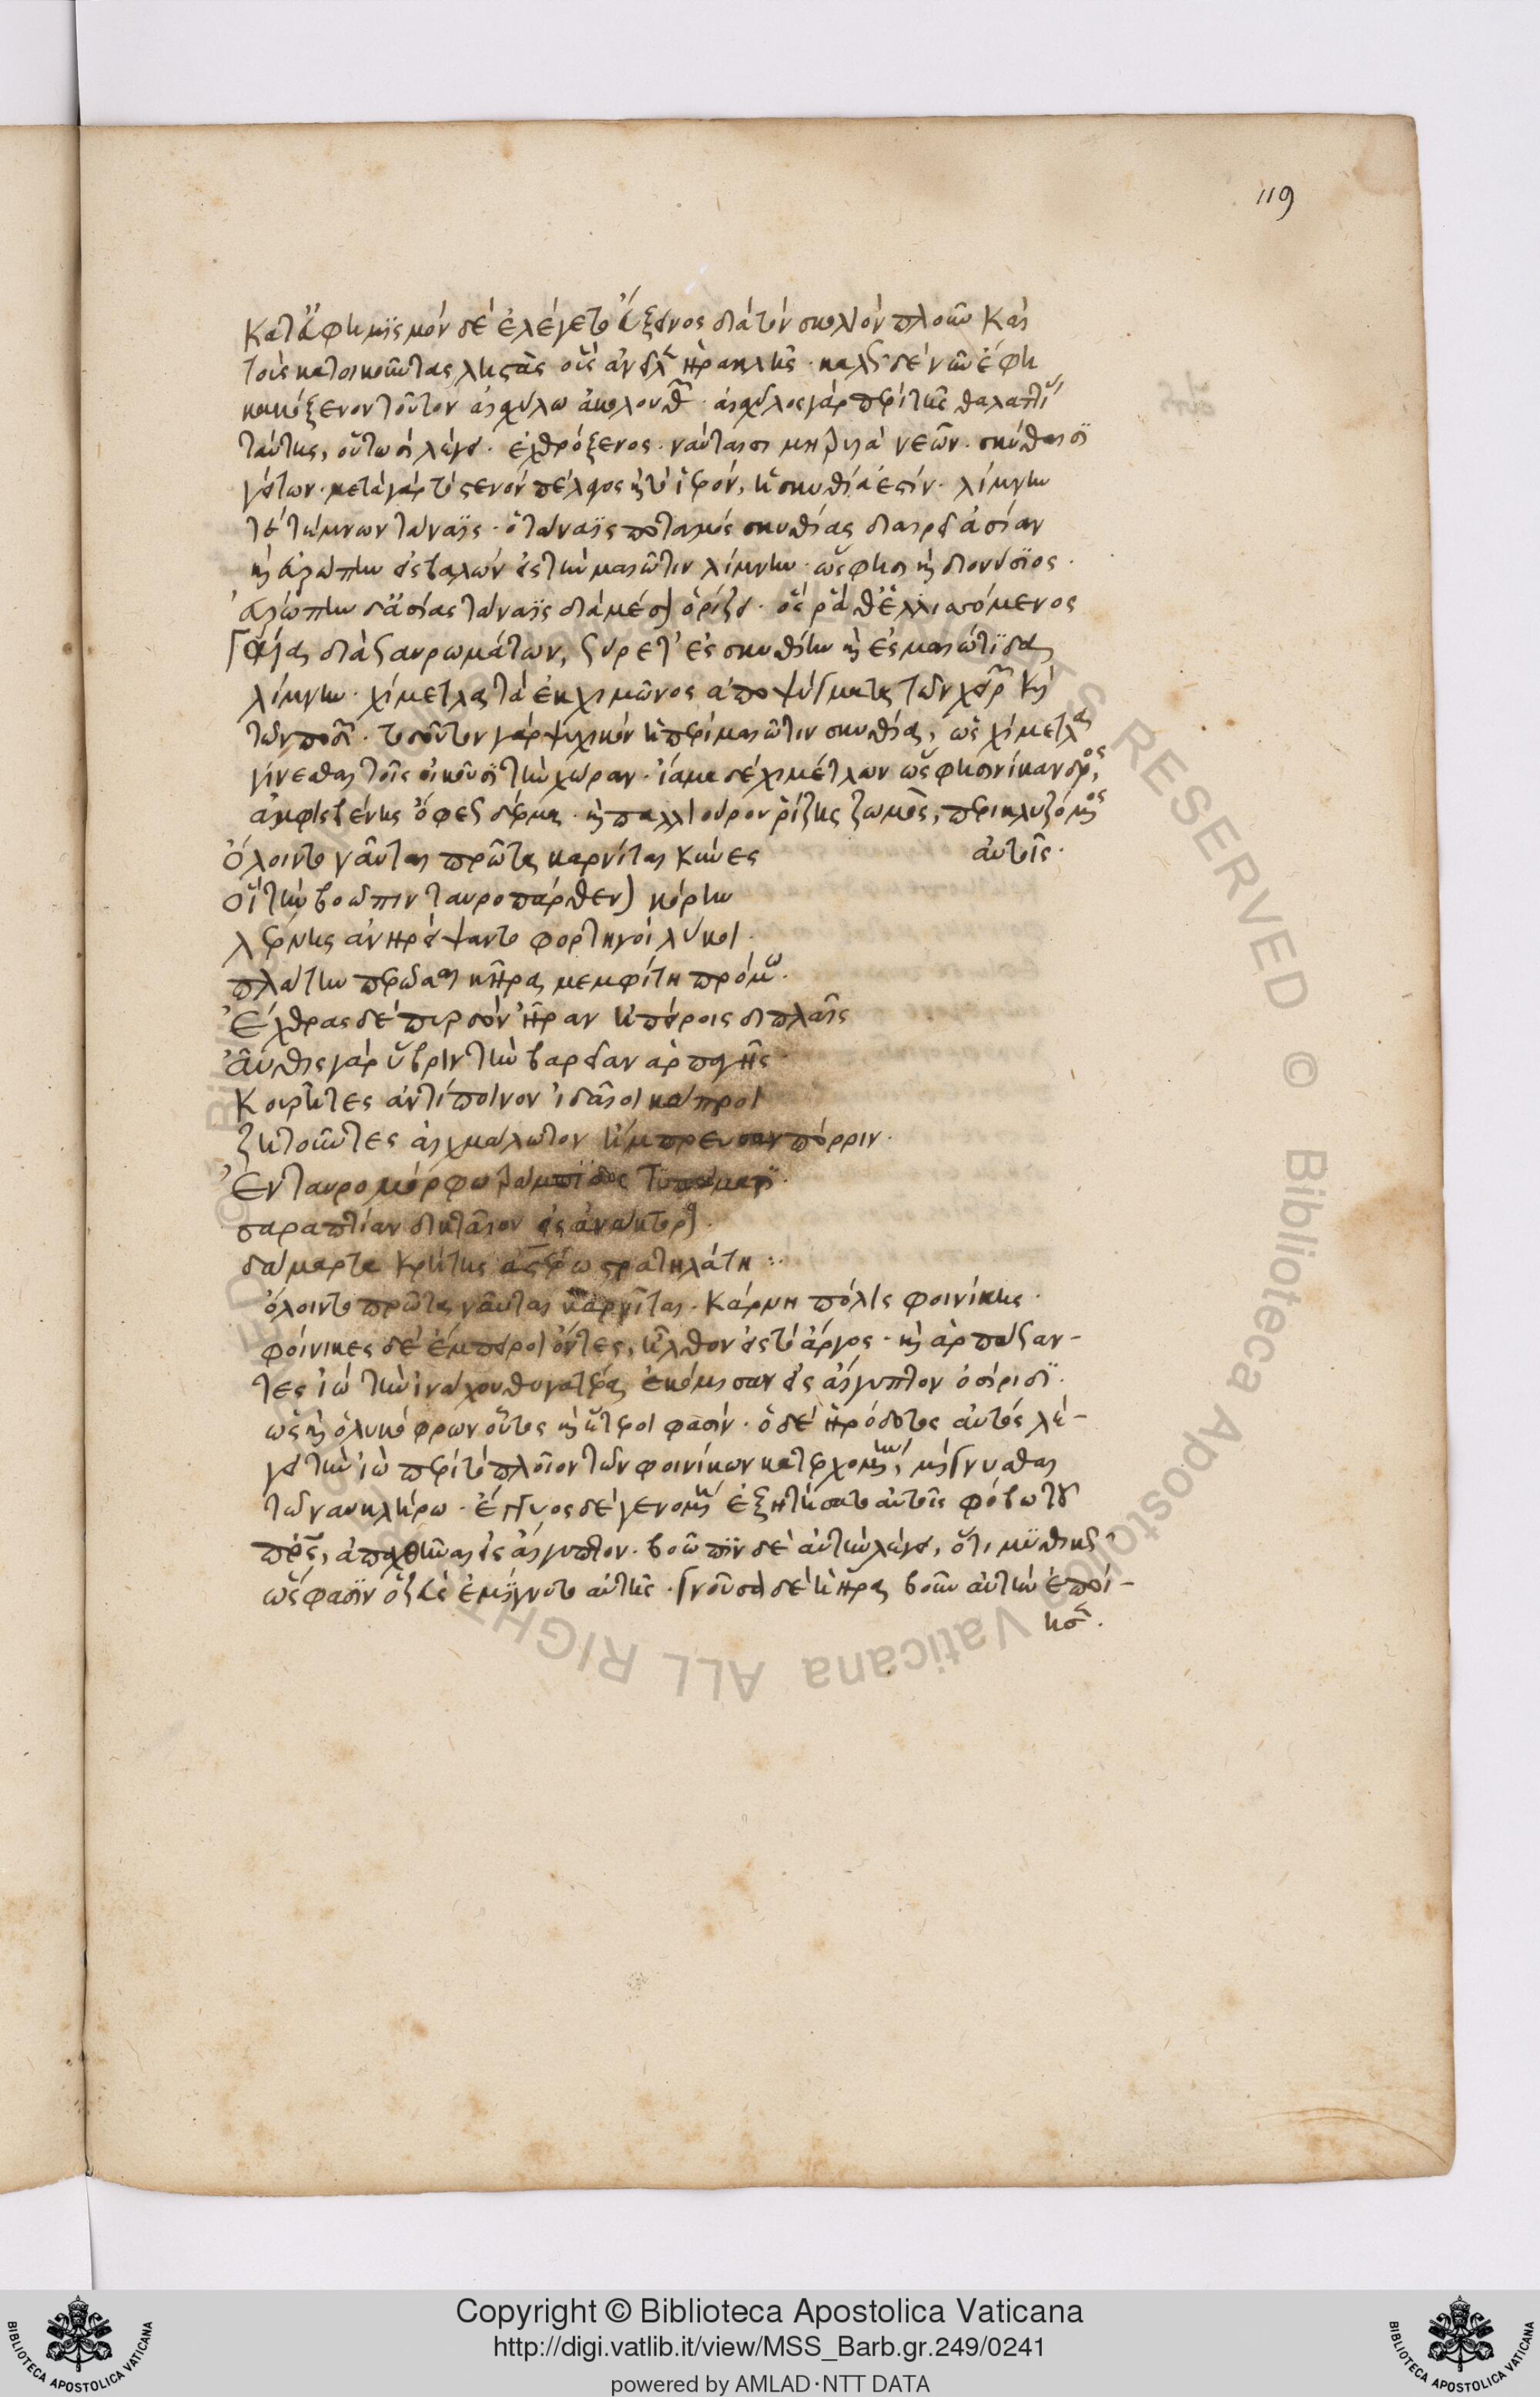 119
Κατ' εὐφημισμὸν δὲ ἐλέγετο ἄξεινος διὰ τὸν σκολιὸν πλοῦν καὶ
τοὺς κατοικοῦντας ληστὰς οὓς ἀνεῖλεν ἡρακλῆς · καλῶς δὲ νῦν ἔφη
κακόξενον τοῦτον αἰσχύλω ἀκολουθ · αἰσχύλος γὰρ περὶ τῆς θαλάττης
ταύτης, οὕτωσὶ λέγει · ἐχθρόξενος ναύταισι μητρυιὰ νεῶν · σκύθαισι
γείτων · μετὰ γὰρ τὸ στενὸν πέλαγος καὶ τὸ ἱερόν, ἡ σκυθία ἐστίν · λίμνην
τε τέμνων τάναϊς · ὁ τάναϊς ποταμὸς σκυθίας διαιρεῖ ἀσίαν
καὶ εὐρώπην εἰσβαλὼν εἰς τὴν μαιῶτιν λίμνην · ὥς φησι καὶ διονύσιος ·
εὐρώπην δ' ἀσίας τάναϊς διὰ μέσον ὁρίζει · ὅς ῥά θ' ἑλισσόμενος
γαίας διὰ σαυρομάτων, σύρετ' ἐς σκυθίην καὶ ἐς μαιώτιδα
λίμνην · χίμετλα τὰ ἐκ χειμῶνος ἀποψύγματα τῶν χειρ καὶ
τῶν ποδ · τοσοῦτον γὰρ ψυχικὸν ἡ περὶ μαιῶτιν σκυθία, ὡς χίμετλα
γίνεσθαι τοῖς οἰκοῦσι τὴν χώραν · ἴαμα δὲ χιμέτλων ὥς φησι νίκανδρος,
ἀμφισβαίνης ὄφεως δέρμα · καὶ παλλιούρου ῥίζης ζωμὸς, περικλυζόμενος
αὐτοῖς ·
Ὄλοιντο ναῦται πρῶτα καρνῖται κύνες
οἳ τὴν βοῶπιν ταυροπάρθενον κόρην
λέρνης ἀνηρείψαντο φορτηγοὶ λύκοι ·
πλάτιν πορεῦσαι κῆρα μεμφίτη πρόμω ·
Ἔχθρας δὲ πυρσὸν ἦραν ἠπείροις διπλαῖς
αὖθις γὰρ ὕβριν τὴν βαρεῖαν ἁρπαγῆς
Κουρῆτες ἀντίποινον ἰδαῖοι κάπροι
ζητοῦντες αἰχμάλωτον ἤμπρευσαν πόρριν ·
Ἐν ταυρομόρφω τράμπιδος τυπώματι
σαραπτίαν δικταῖον εἰς ἀνάκτορον ·
δάμαρτα κρήτης ἀστέρω στρατηλάτη :
ὄλοιντο πρῶτα ναῦται καρνῖται · Κάρνη πόλις φοινίκης ·
φοίνικες δὲ ἔμποροι ὄντες, ἦλθον εἰς τὸ ἄργος · καὶ ἁρπάξαν-
τες ἰὼ τὴν ἰνάχου θυγατέρα ἐκόμισαν εἰς αἴγυπτον ὀσίριδι ·
ὡς καὶ ὁ λυκόφρων οὗτος καὶ ἕτεροι φασίν · ὁ δὲ ἡρόδοτος αὐτὸς λέ-
γει τὴν ἰὼ περὶ τὸ πλοῖον τῶν φοινίκων κατερχομένην, μίγνυσθαι
τῶ ναυκλήρω · ἔγγυος δὲ γενομένη ἐξῃτήσατο αὐτοῖς φόβω τοῦ
πρς, ἀπαχθῆναι εἰς αἴγυπτον · βοῶπιν δὲ αὐτὴν λέγει, ὅτι μυθικῶς
ὥς φασιν ὁ ζεὺς ἐμίγνυτο αὐτῆ · γνοῦσα δὲ ἡ ἥρα βοῦν αὐτὴν ἐποί-
ησεν ·
Copyright © Biblioteca Apostolica Vaticana
http://digi.vatlib.it/view/MSS_Barb.gr.249/0241
powered by AMLAD·NTT DATA